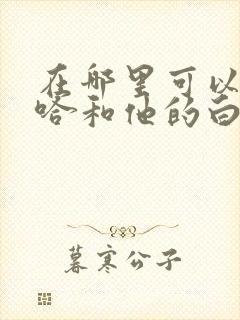 在哪里可以
哈和他的白
暮寒公子